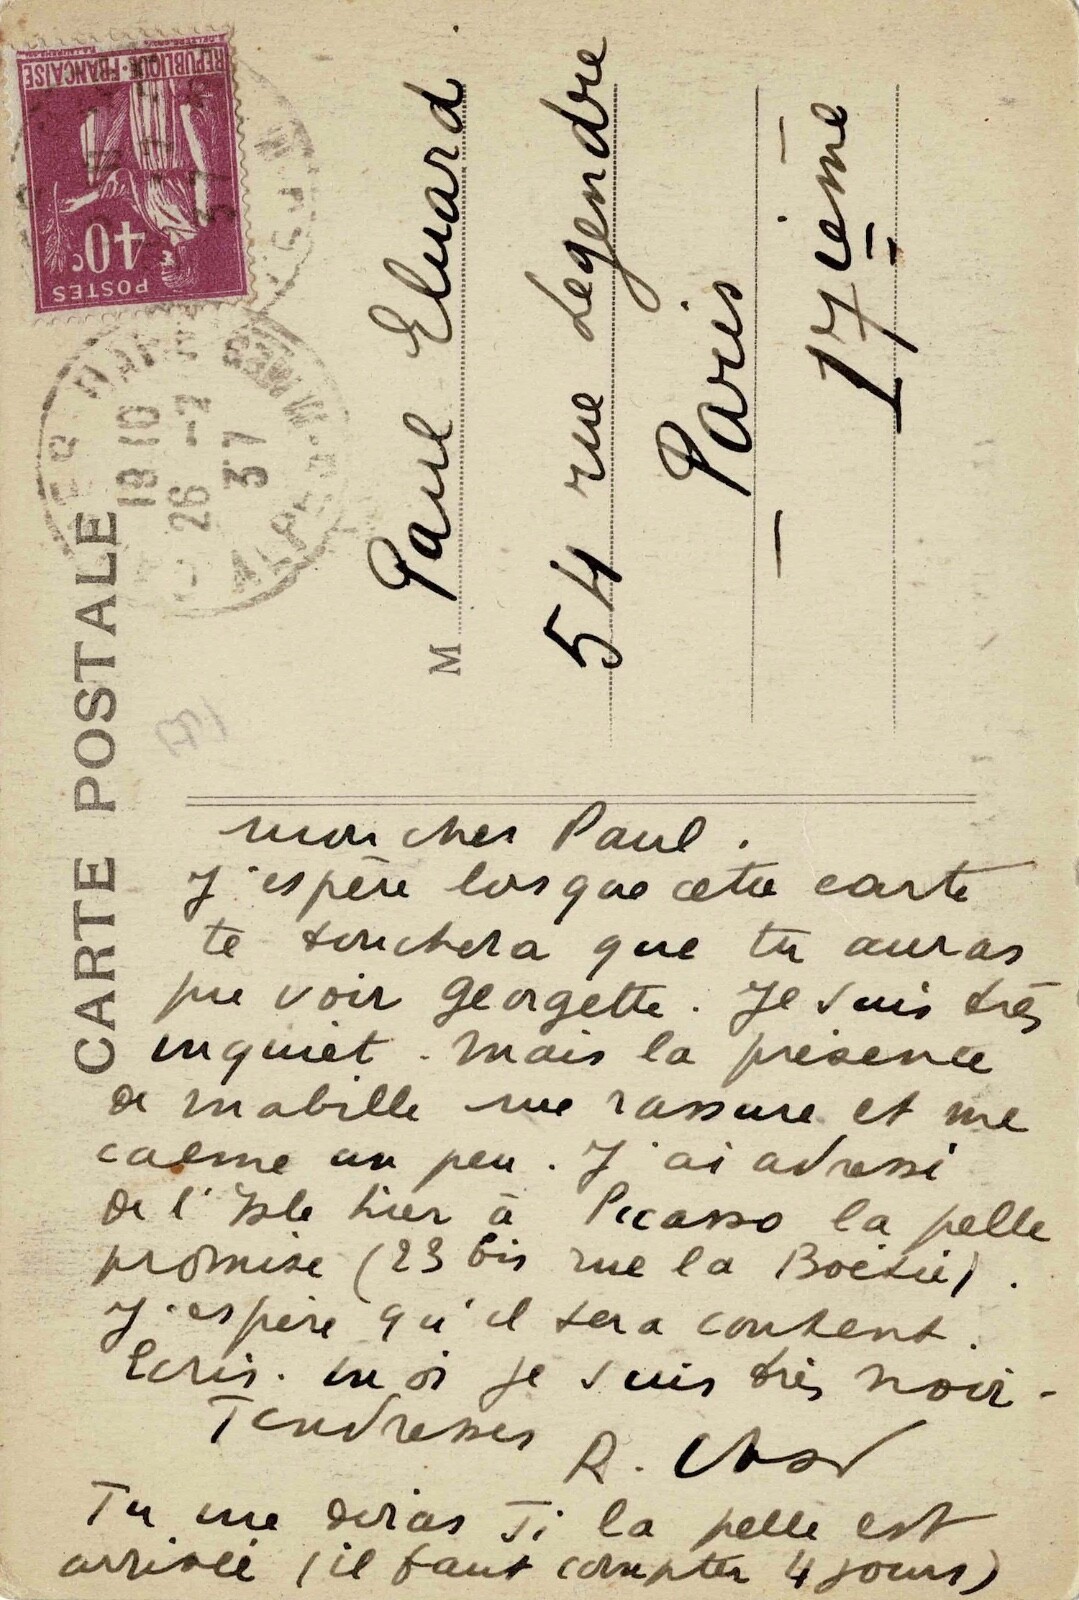 CARTE POSTALE
RÉPUBLIQUE·FRANÇAISE
40c
POSTES
19 10
26 -2
37
M Paul Eluard
54 rue Legendre
Paris
17ième
mon cher Paul.
J'espère lorsque cette carte
te touchera que tu auras
pu voir Georgette. Je suis très
inquiet. Mais la présence
de Mabille me rassure et me
calme un peu. J'ai adressé
de l'Isle hier à Picasso la pelle
promise (23 bis rue la Boëtie).
J'espère qu'il sera content.
Ecris-moi je suis très noir-
Tendresses R. Char
Tu me diras si la pelle est
arrivée (il faut compter 4 jours)